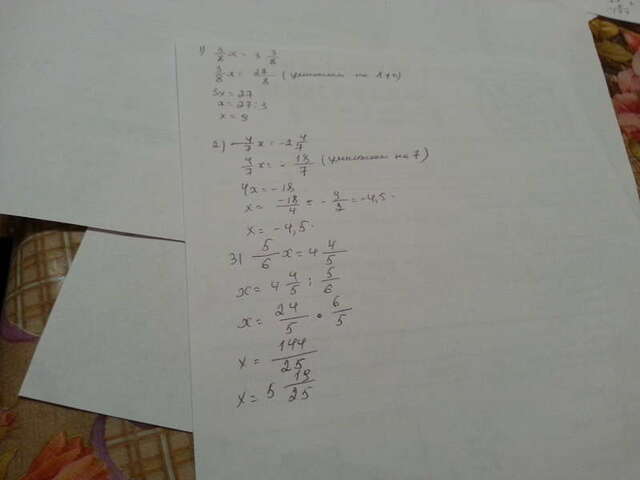 1) 3/8 x = 3 3/8
3/8 x = 27/8 (умножим на 8)
3x = 27
x = 27 : 3
x = 9
2) 4/7 x = -2 4/7
4/7 x = - 18/7 (умножим на 7)
4x = -18
x = -18/4 = - 9/2 = -4,5
x = -4,5
3) 5/6 x = 4 4/5
x = 4 4/5 : 5/6
x = 24/5 • 6/5
x = 144/25
x = 5 19/25